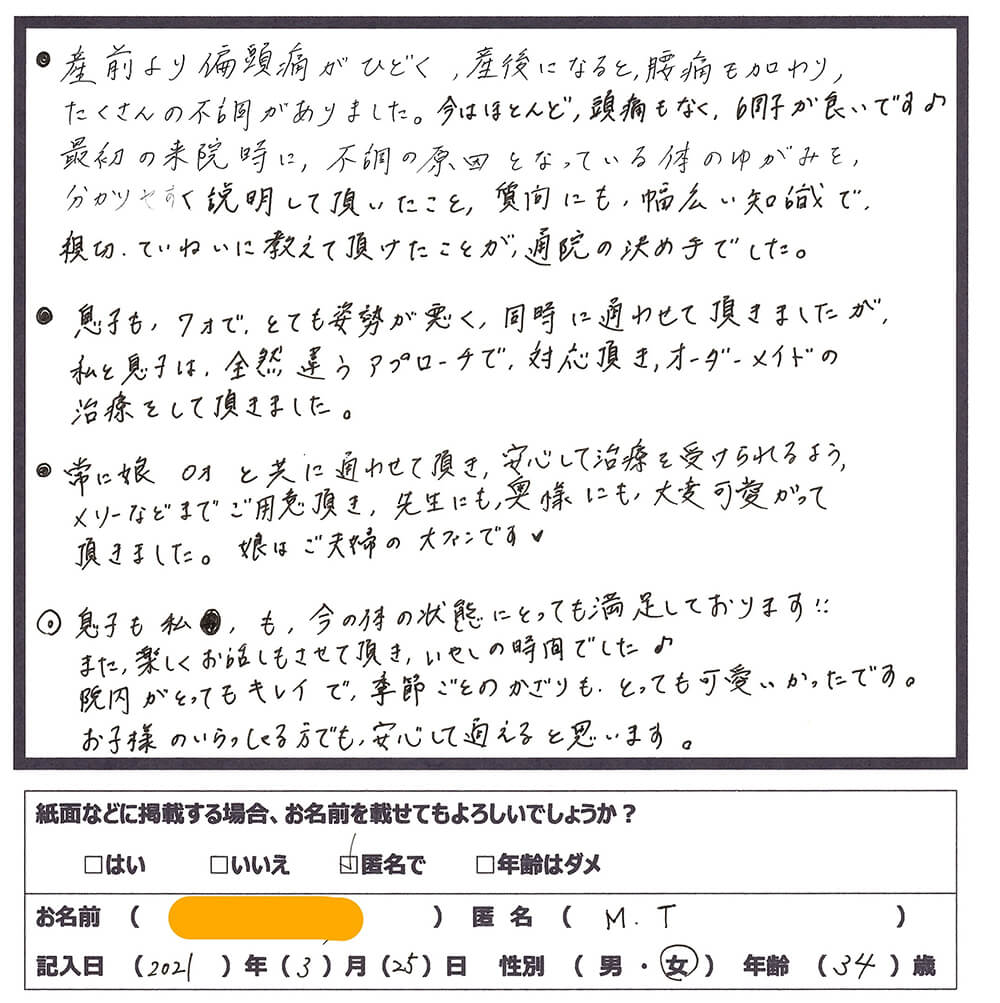 ● 産前より偏頭痛がひどく、産後になると、腰痛も加わり、
たくさんの不調がありました。今はほとんど、頭痛もなく、調子が良いです♪
最初の来院時に、不調の原因となっている体のゆがみを、
分かりやすく説明して頂いたこと、質問にも、幅広い知識で、
親切、ていねいに教えて頂けたことが、通院の決め手でした。
● 息子も、7才で、とても姿勢が悪く、同時に通わせて頂きましたが、
私と息子は、全然違うアプローチで、対応頂き、オーダーメイドの
治療をして頂きました。
● 常に娘 0才 と共に通わせて頂き、安心して治療を受けられるよう、
メリーなどまでご用意頂き、先生にも、奥様にも、大変可愛がって
頂きました。娘はご夫婦の大ファンです♥
◎ 息子も私、も、今の体の状態にとっても満足しております!!
また、楽しくお話しもさせて頂き、いやしの時間でした♪
院内がとってもキレイで、季節ごとのかざりも、とっても可愛いかったです。
お子様のいらっしゃる方でも、安心して通えると思います。
紙面などに掲載する場合、お名前を載せてもよろしいでしょうか?
□はい □いいえ ☑匿名で □年齢はダメ
お名前 ( ) 匿名 ( M.T )
記入日 (2021)年(3)月(25)日 性別 (男・女) 年齢 (34)歳